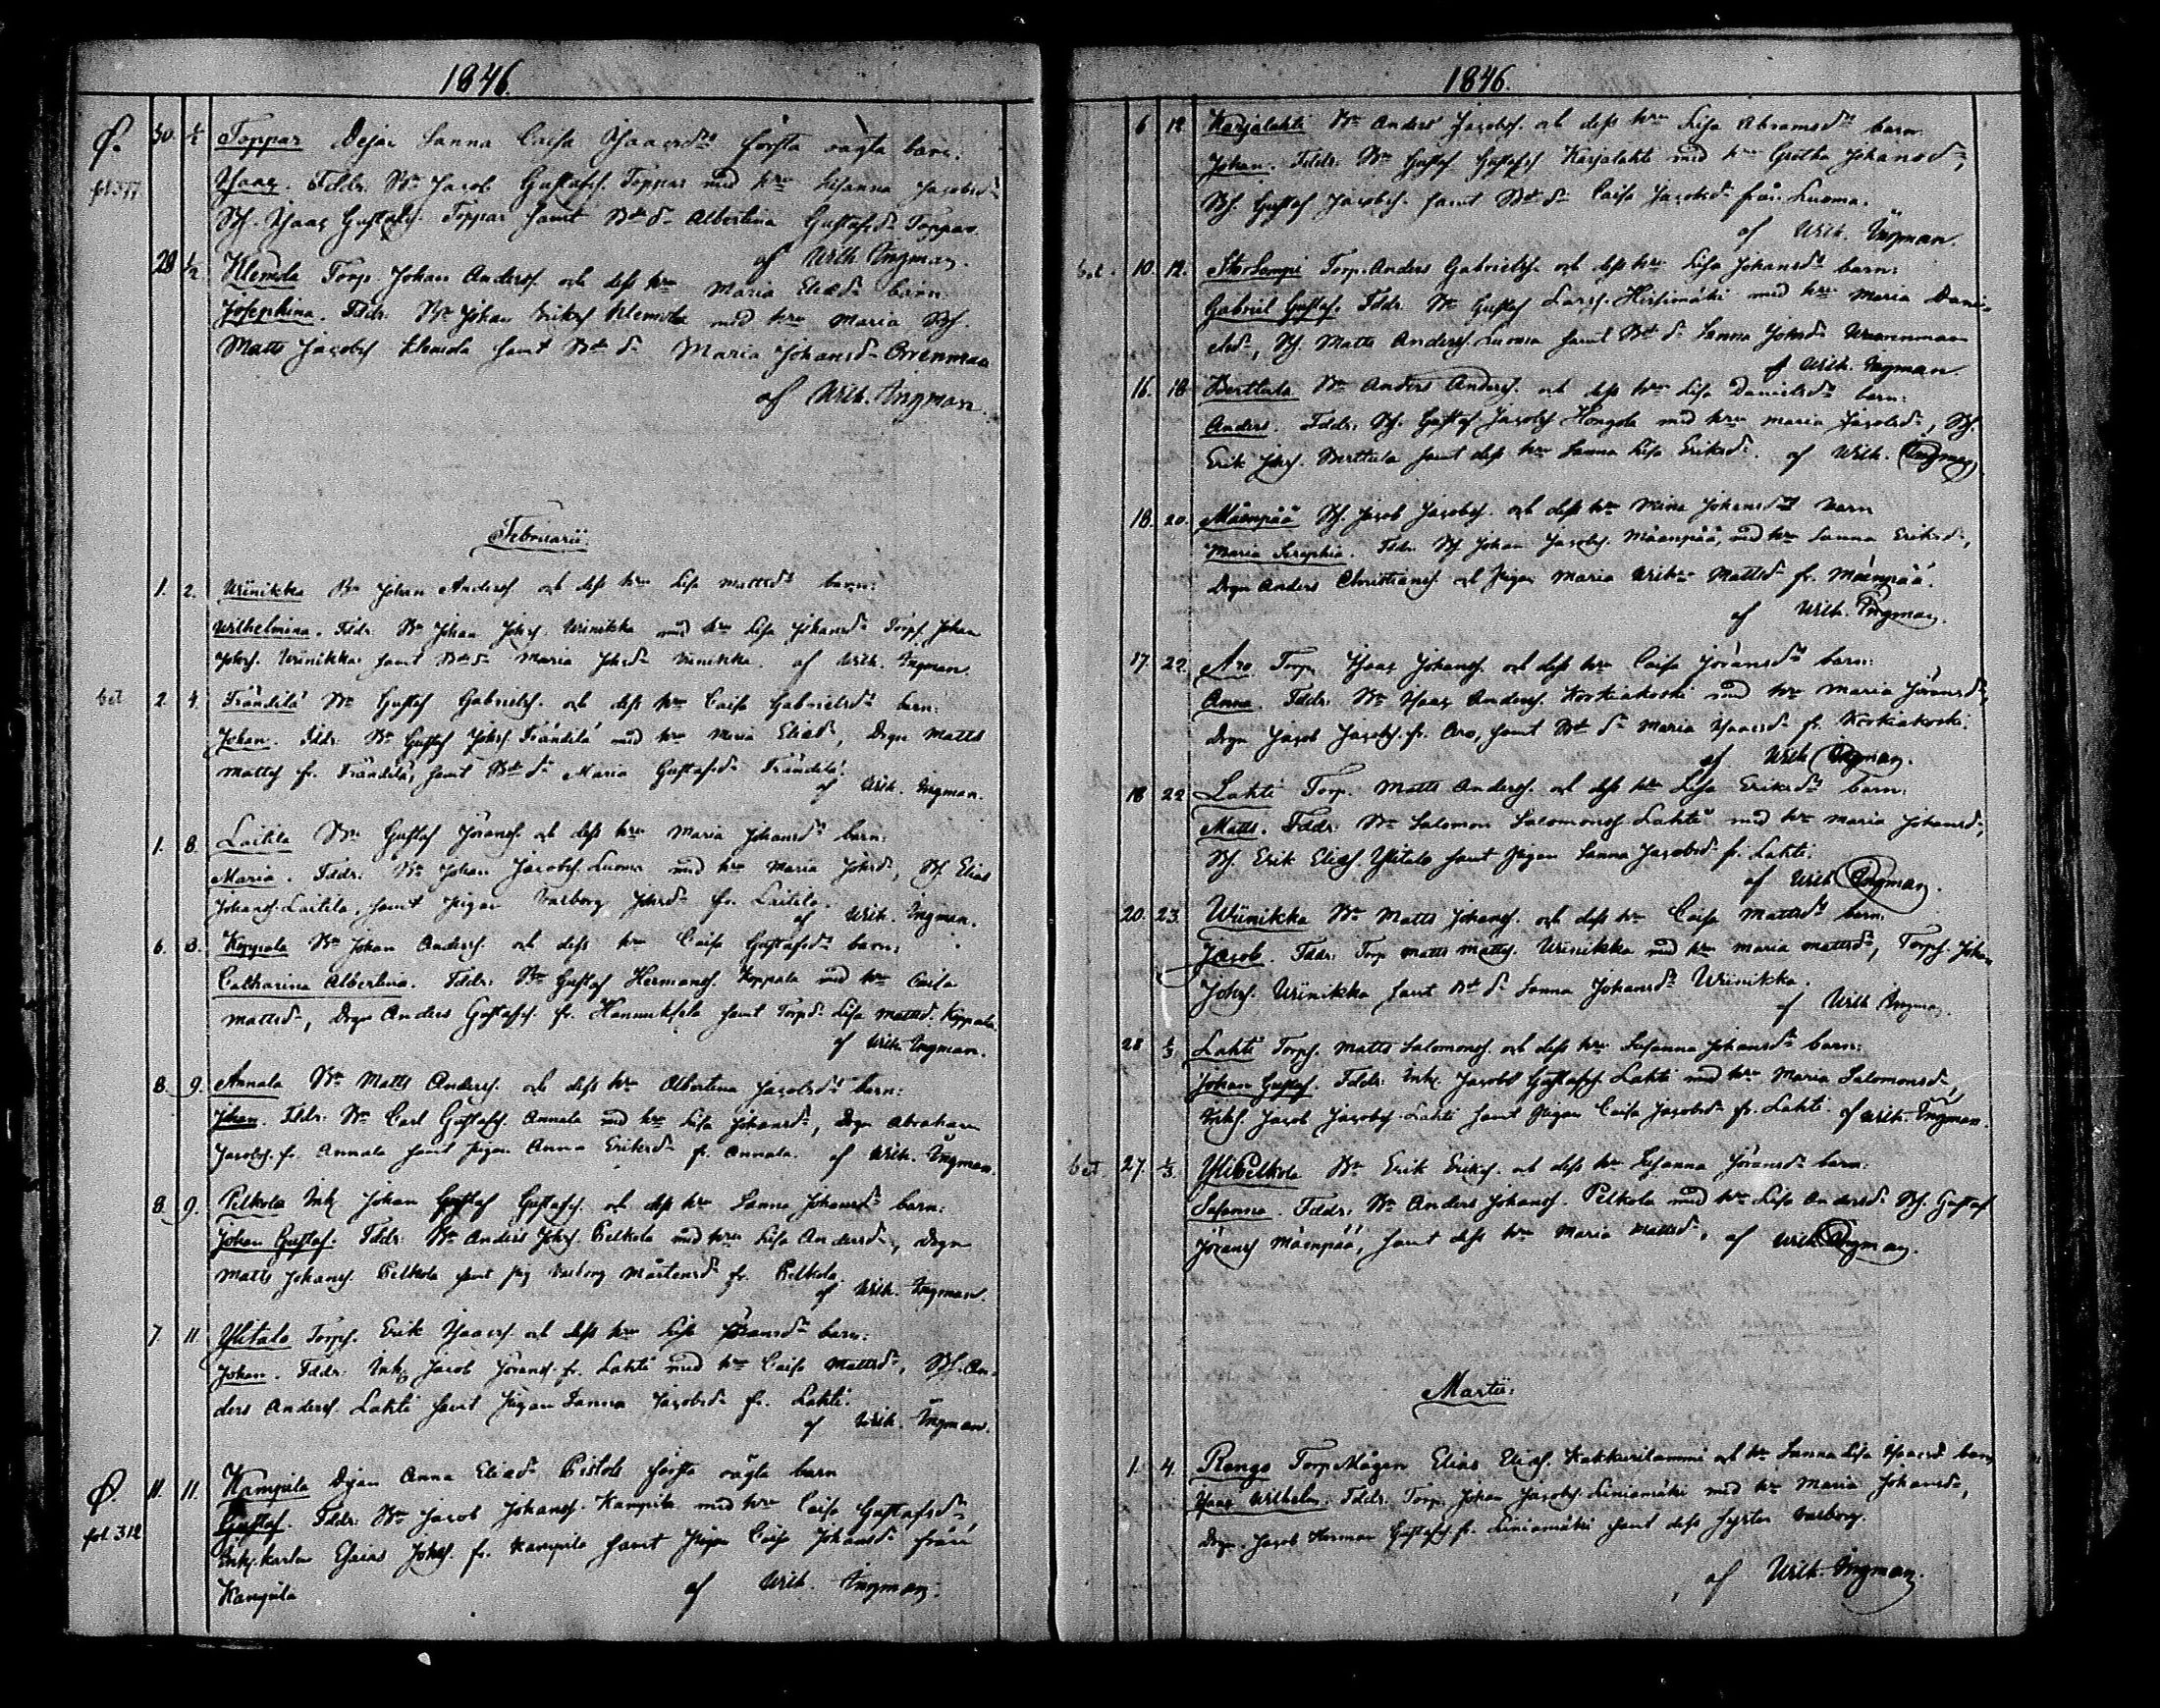 1846.
Ø. 30. 1/2 Toppar Dejan Sanna Caisa Isaacsds första oägta barn:
fol 377 Isaac. Fddr: Bn Jacob Gustafss. Toppar med hru Susanna Jacobsdr
Bs. Isaac Gustafss. Toppar samt Bdr Albertina Gustafsdr Toppar.
af Wilh. Ingman.
29 1/2 Klemola Torp. Johan Anderss. och dess hru Maria Eliædr barn:
Josephina. Fddr: Bn Johan Erikss Klemola med hru Maria Bs.
Matts Jacobss Klemola samt Bdr Maria Johansdr Orrenmaa
af Wilh. Ingman.
Februarii.
1. 2. Wiinikka Bn Johan Anderss och dess hru Lisa Mattsdr barn:
Wilhelmina. Fddr: Bn Johan Johss. Wiinikka med hru Lisa Johansdr Torps. Johan
Johss. Wiinikka samt Bdr Maria Johsdr Wiinikka. af Wilh. Ingman.
bet 2 4. Frändilä Bn Gustaf Gabrielss. och dess hru Caisa Gabrielsdr barn:
Johan. Fddr: Bn Gustaf Johss. Frändilä med hru Maria Eliædr, Drgn Matts
Mattss fr. Frändilä, samt Bdr Maria Gustafsdr Frändilä.
af Wilh. Ingman.
1. 8. Laitila Bn Gustaf Jöranss. och dess hru Maria Johansdr barn:
Maria. Fddr: Bn Johan Jacobss. Luoma med hru Maria Johsdr, Bs. Elias
Johanss. Laitila, samt pigan Walborg Johsdr fr. Laitila.
af Wilh. Ingman.
6. 8. Koppala Bn Johan Anderss. och dess hru Caisa Gustafsdr barn:
Catharina Albertina. Fddr: Bn Gustaf Hermanss. Koppala med hru Caisa
Mattsdr, Drgn Anders Gustafss. fr. Hannuksela samt Torpdr Lisa Mattsd. Koppala.
af Wilh. Ingman.
8. 9. Annala Bn Matts Anderss. och dess hru Albertina Jacobsdr barn:
Johan. Fddr: Bn Carl Gustafss. Annala med hru Lisa Johansdr, Drgn Abraham
Jacobss. fr. Annala samt pigan Anna Eriksdr fr. Annala. af Wilh. Ingman.
8. 9. Pelkola Inh. Johan Gustaf Gustafss. och dess hru Sanna Johansdr barn:
Johan Gustaf. Fddr: Bn Anders Johss. Pelkola med hru Lisa Andersdr, Drgn
Matts Johanss. Pelkola samt pig Walborg Mårtensdr fr. Pelkola.
af Wilh. Ingman.
7 11 Ylitalo Torps. Erik Isaacss. och dess hru Lisa Jöransdr barn:
Johan. Fddr: Inh. Jacob Jöranss. fr. Lahti med hru Caisa Mattsdr, Bs. An-
ders Anderss. Lahti samt Pigan Sanna Jacobsdr fr. Lahti.
af Wilh. Ingman.
Ø. 11. 11. Kampila Dejan Anna Eliædr Pistols första oägta barn
fol. 312 Gustaf. Fddr: Bn Jacob Johanss. Kampila med hru Caisa Gustafsdr,
Inh. karlen Esaias Johss. fr. Kampila samt Pigan Caisa Johansdr från
Kampila af Wilh. Ingman.
1846.
6 12 Karjalahti Bn Anders Jacobss. och dess hru Lisa Abramsdr barn:
Johan. Fddr: Bn Gustaf Gustafss Karjalahti med hru Gretha Johansdr,
Bs. Gustaf Jacobss. samt Bdr Caisa Jacobsdr från Luoma.
af Wilh. Ingman.
bet. 10. 12. Stor Lampi Torp. Anders Gabrielss. och dess hru Lisa Johansdr barn:
Gabriel Gustaf. Fddr: Bn Gustaf Larss. Hirsimäki med hru Maria Dani-
elsdr, Bs. Matts Anderss. Luoma samt Bdr Sanna Johsdr Wuorenmaa
af Wilh. Ingman.
16. 18 Berttula Bn Anders Anderss. och dess hru Lisa Danielsdr barn:
Anders. Fddr: Bs. Gustaf Jacobss Hongola med hru Maria Jacobsdr, Bs.
Erik Johss. Berttula samt dess hru Sanna Lisa Eriksdr. af Wilh. Ingman
18. 20. Mäenpää Bs. Jacob Jacobss. och dess hru Mina Johansdr barn
Maria Seraphia. Fddr: Bs Johan Jacobss. Mäenpää, med hru Sanna Eriksdr,
Drgn Anders Christianss. och Pigan Maria Wilhna Mattsdr fr. Mäenpää.
af Wilh. Ingman.
17. 22. Aro Torpn Isaac Johanss. och dess hru Caisa Jöransdr barn:
Anna. Fddr: Bn Isaac Anderss. Korkiakoski med hru Maria Jöransdr,
Drgn Jacob Jacobss. fr. Aro, samt Bdr Maria Isaacsdr fr. Korkiakoski.
af Wilh Ingman.
18 22 Lahti Torp. Matts Anderss. och dess hru Lisa Eriksdr barn:
Matts. Fddr: Bn Salomon Salomonss. Lahti med hru Maria Johansdr,
Bs. Erik Eliæss. Ylitalo samt Pigan Sanna Jacobsdr fr. Lahti.
af Wilh Ingman.
20. 23. Wiinikka Bn Matts Johanss. och dess hru Caisa Mattsdr barn.
Jacob. Fddr: Torp Matts Mattss. Wiinikka med hru Maria Mattsdr, Torps. Johan
Johss. Wiinikka samt Bdr Sanna Johansdr Wiinikka.
af Wilh Ingman.
28 1/3. Lahti Torps. Matts Salomonss. och dess hru Susanna Johansdr barn:
Johan Gustaf. Fddr: Inh. Jacob Gustafss. Lahti med hru Maria Salomonsdr,
Inhs. Jacob Jacobss. Lahti samt Pigan Caisa Jacobsdr fr. Lahti. af Wilh. Ingman.
bet 27. 1/3. YliPelkola Bn Erik Erikss. och dess hru Susanna Jöransdr barn:
Susanna. Fddr: Bn Anders Johanss. Pelkola med hru Lisa Andersdr Bs. Gustaf
Jöranss Mäenpää, samt dess hru Maria Mattsdr, af Wilh. Ingman.
Martii:
1. 4. Rango Torp.Mågen Elias Eliæss. Kakkurilammi och hru Sanna Lisa Isaacsd barn
Isaac Wilhelm. Fddr: Torp. Johan Jacobss. Liniamäki med hru Maria Johansdr,
Drgn. Jacob Herman Gustafss. fr. Liniamäki samt dess syster Walborg.
af Wilh. Ingman.